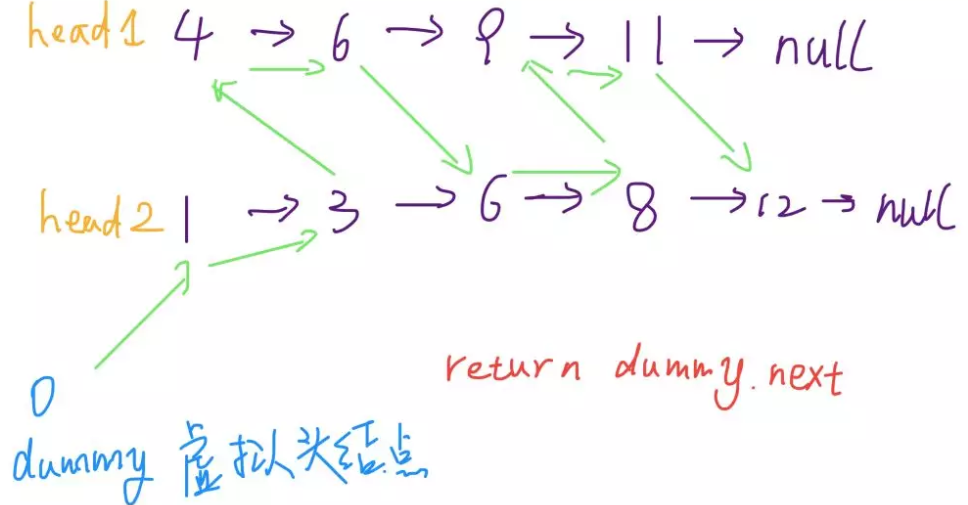 head1 4 → 6 → 9 → 11 → null
head2 1 → 3 → 6 → 8 → 12 → null
return dummy.next
0
dummy 虚拟头结点